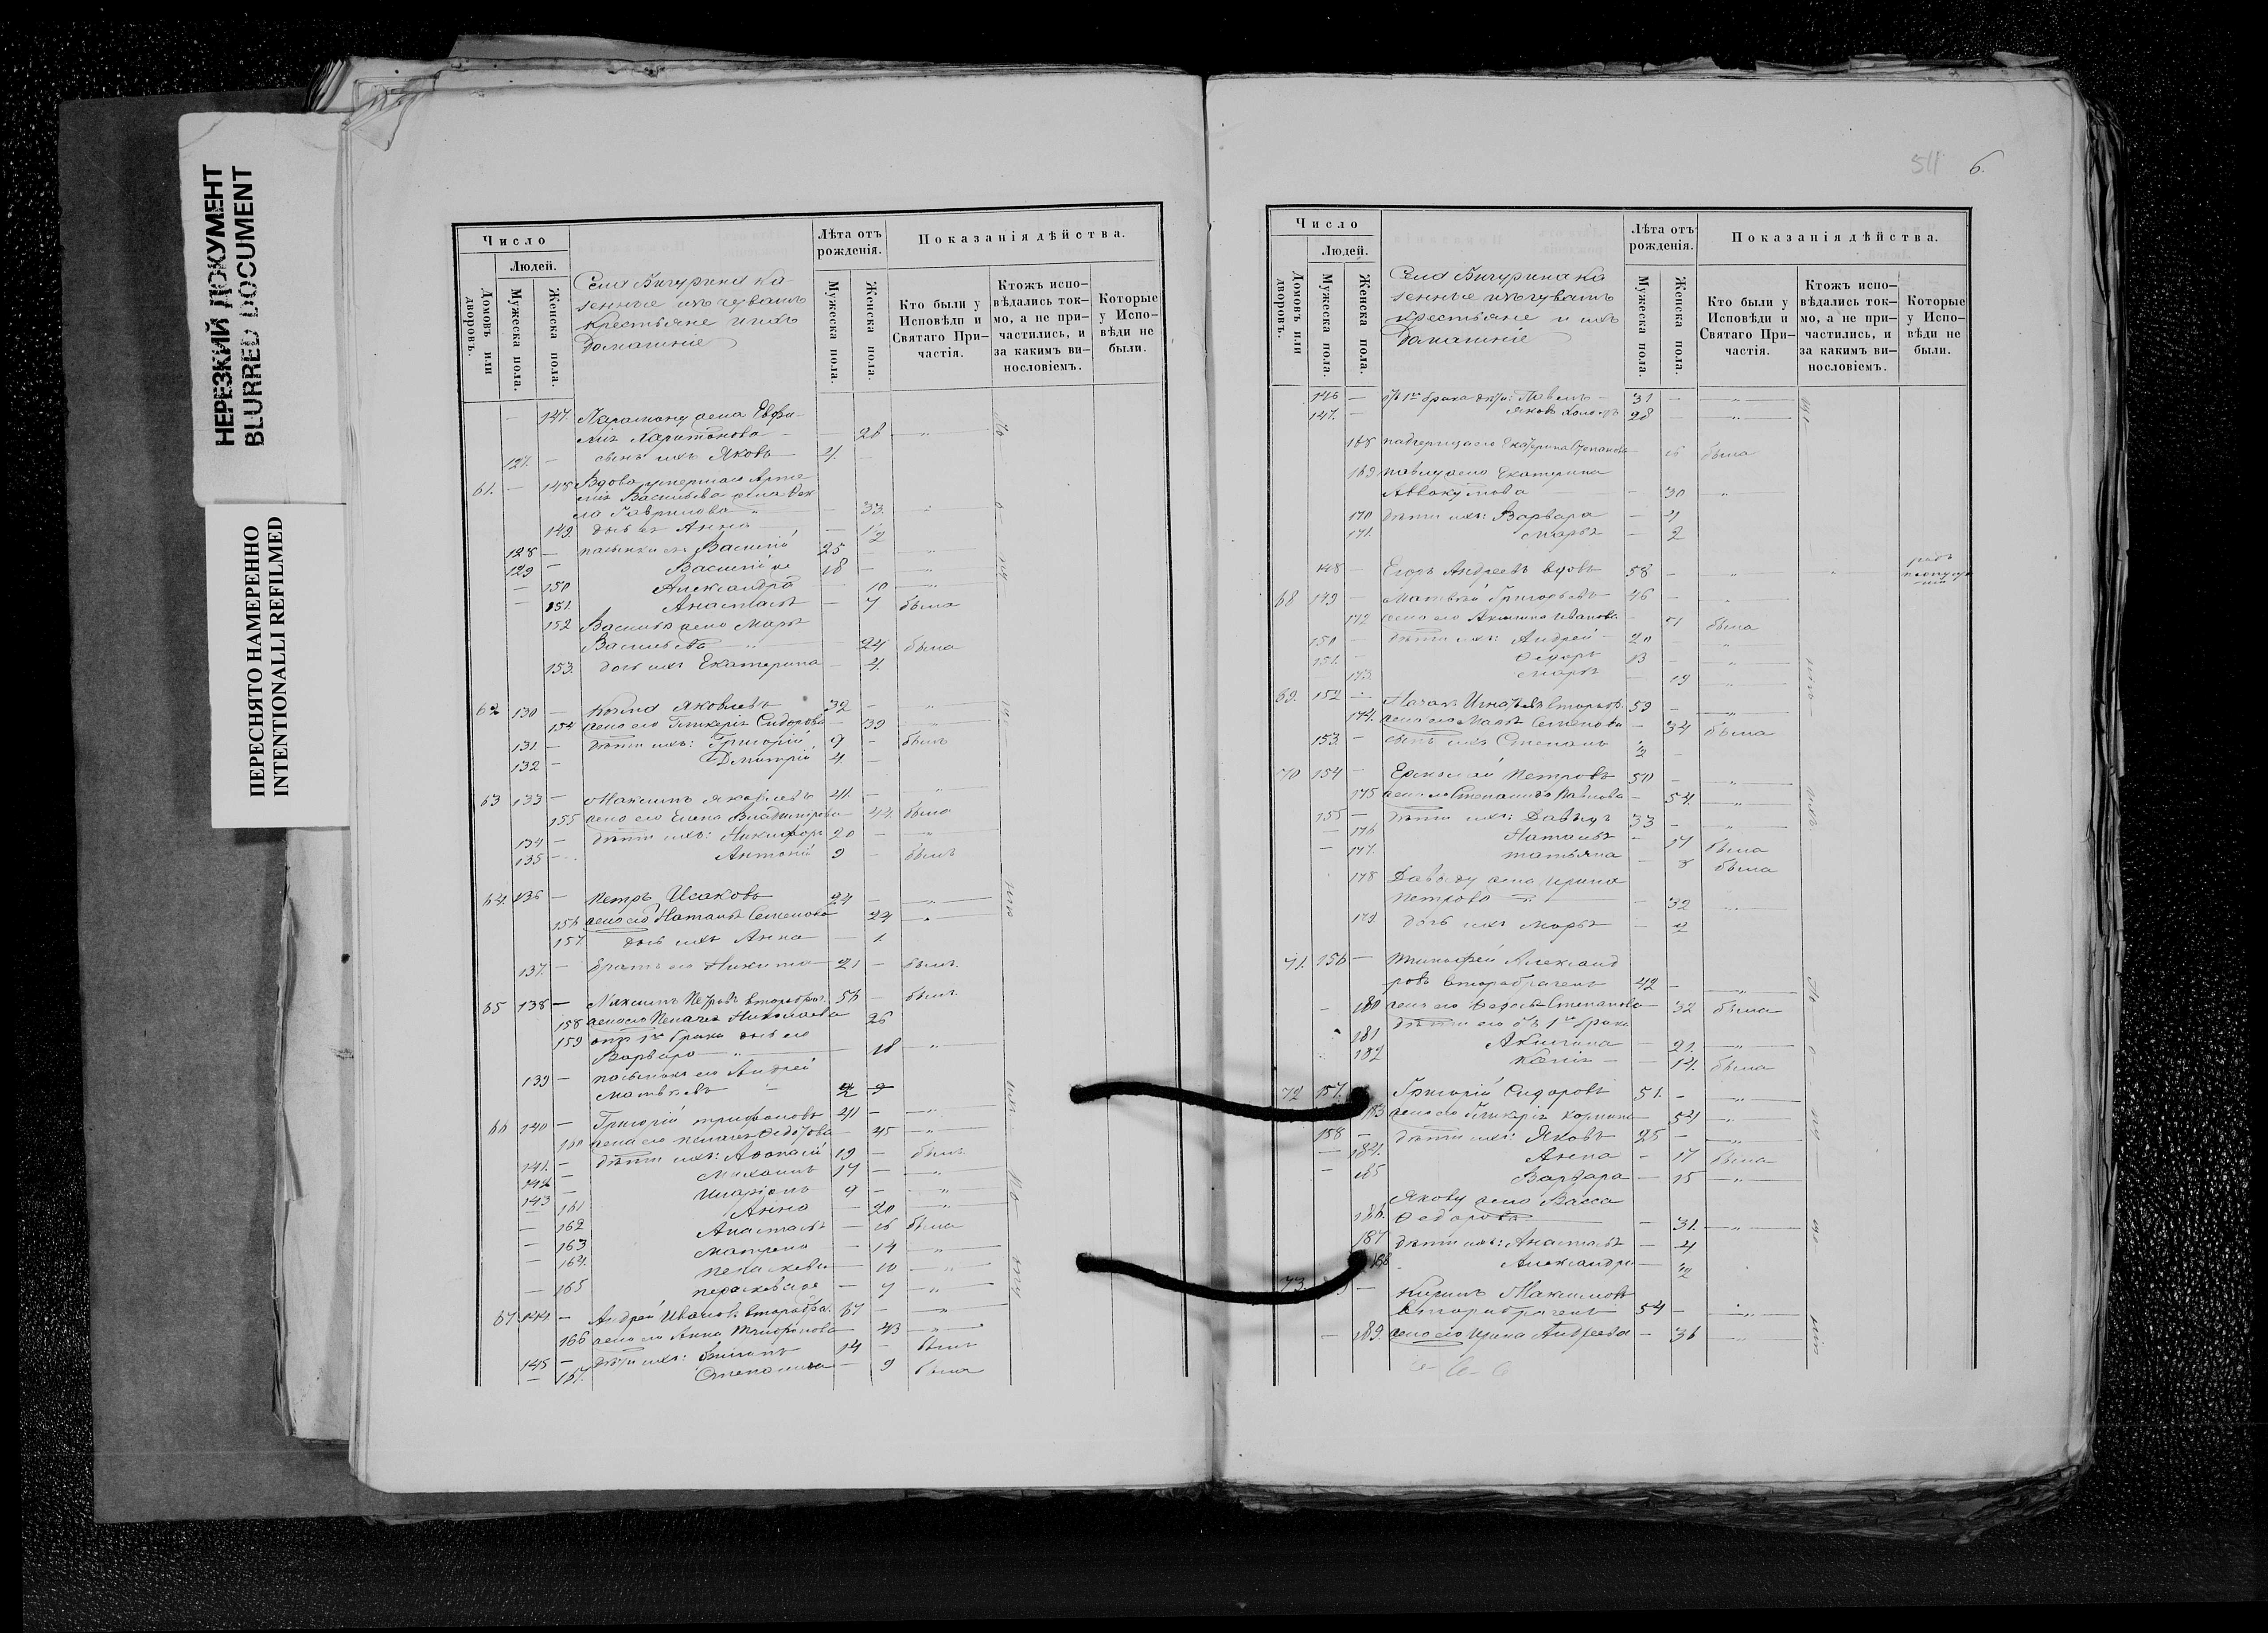 НЕРЕЗКИЙ ДОКУМЕНТ
BLURRED DOCUMENT
ПЕРЕСНЯТО НАМЕРЕННО
INTENTIONALLI REFILMED
Число
Людей.
Домовъ или дворовъ.
Мужеска пола.
Женска пола.
Села Бигурина ка-
зенные изъ чувашъ
крестьяне и ихъ
домашніе
Лѣта отъ рожденія.
Мужеска пола.
Женска пола.
Показанія дѣйства.
Кто были у Исповѣди и Святаго При-частія.
Ктожъ испо-вѣдались ток-мо, а не при-частились, и за какимъ ви-нословіемъ.
Которые у Испо-вѣди не были.
— 147 Парамону жена Евфи-
мія Харитонова — 28 "
127. — сынъ ихъ Яковъ 4. —
61. — 148 Вдова умершаго Арте-
мія Васильева жена Фек-
ла Гаврилова — 33. "
149. дочь ея Анна — 12
128 — пасынки ея Василій 25 — "
129 — Василій же 18 — "
— 150 Александра — 10 "
— 151. Анастасія — 7 была
152 Василія жена Марѳа
Васильева — 24 была
153. дочь ихъ Екатерина — 4.
62 130 — Козма Яковлевъ 32 — "
154 жена его Гликерія Сидорова — 39 "
131. — дѣти ихъ: Григорій 9 — былъ
132 — Дмитрій 4. —
63 133 — Максимъ Яковлевъ 41. — "
155 жена его Елена Владимирова — 44. была
134 — дѣти ихъ: Никифоръ 20 — "
135 — Антоній 9 — былъ
64. 136 — Петръ Исаковъ 24 — "
156 жена его Наталья Семенова 24 "
157. дочь ихъ Анна — 1.
137. — братъ его Никита 21 — былъ.
65 138 — Максимъ Петровъ второбрач. 56 — былъ
158 жена его Пелагея Николаева 26
159 отъ 1го брака дочь его
Варвара — 18 "
139 — пасынокъ его Андрей
Матвѣевъ 2
66 140 — Григорій Трифоновъ 41 — "
160 жена его Пелагея Федотова 45 — "
141. — дѣти ихъ: Афанасій 19 — былъ.
142 — Михаилъ 17 — "
143 — Иларіонъ 9 — "
161 Анна — 20 "
— 162 Анастасія — 16 была
— 163 Матрена — 14 "
— 164. Пелагея — 10 "
— 165 Параскева — 7 "
67 144. — Андрей Ивановъ второбра. 67 — "
166 жена его Анна Трифонова 43 "
145 — дѣти ихъ: 14 — былъ
— 167. Степанида — 9 была
511 6.
Число
Людей.
Домовъ или дворовъ.
Мужеска пола.
Женска пола.
Села Бигурина ка
зенные изъ чувашъ
крестьяне и ихъ
домашніе
Лѣта отъ рожденія.
Мужеска пола.
Женска пола.
Показанія дѣйства.
Кто были у Исповѣди и Святаго При-частія.
Ктожъ испо-вѣдались ток-мо, а не при-частились, и за какимъ ви-нословіемъ.
Которые у Испо-вѣди не были.
146 — отъ 1го брака дѣти: Павелъ 31 — "
147. — Яковъ холостъ 28 — "
168 падчерица его Екатерина Степанова 16 была
169 Павлу жена Екатерина
Аввакумова — 30 "
170 дѣти ихъ: Варвара — 4
171. Марѳа — 2
148 — Егоръ Андреевъ вдовъ 58 — "
68 149 — Матвѣй Григорьевъ 46 — "
172 жена его Акилина Иванова 51 была
150 — дѣти ихъ: Андрей 20 — "
151. — Федоръ 13 — "
173. Марѳа — 19 "
69. 152 — Игнатьевъ второбр. 59 — "
174. жена его Марѳа Семенова — 34 была
153. — сынъ ихъ Степанъ 2 —
70 154 — Ермолай Петровъ 50 — "
175 жена его Степанида Павлова — 54. "
155 — дѣти ихъ: Давыдъ 33 — "
— 176 Наталья — 17 была
— 177. Татьяна — 8 была
178 Давыду жена Ирина
Петрова — 32 "
179 дочь ихъ Марѳа — 2
71. 156 — Тимофей Александ
ровъ второбраченъ 42 — "
— 180 жена его Федосья Степанова 32 была
дѣти его отъ 1го брака
181 Акилина — 21. "
182 Ксенія — 14. была
72 157. Григорій Сидоровъ 51. — "
183 жена его Гликерія 54 "
158 — дѣти ихъ: Яковъ 25 — "
— 184. Анна — 17 была
— 185 Варвара — 15 "
Якову жена Васса
186. Федорова — 31. "
187 дѣти ихъ: Анастасія — 4
188 Александра — 2
73. — Кирилъ Максимовъ
второбраченъ 54 — "
— 189. жена его Ирина Андреева — 36 "